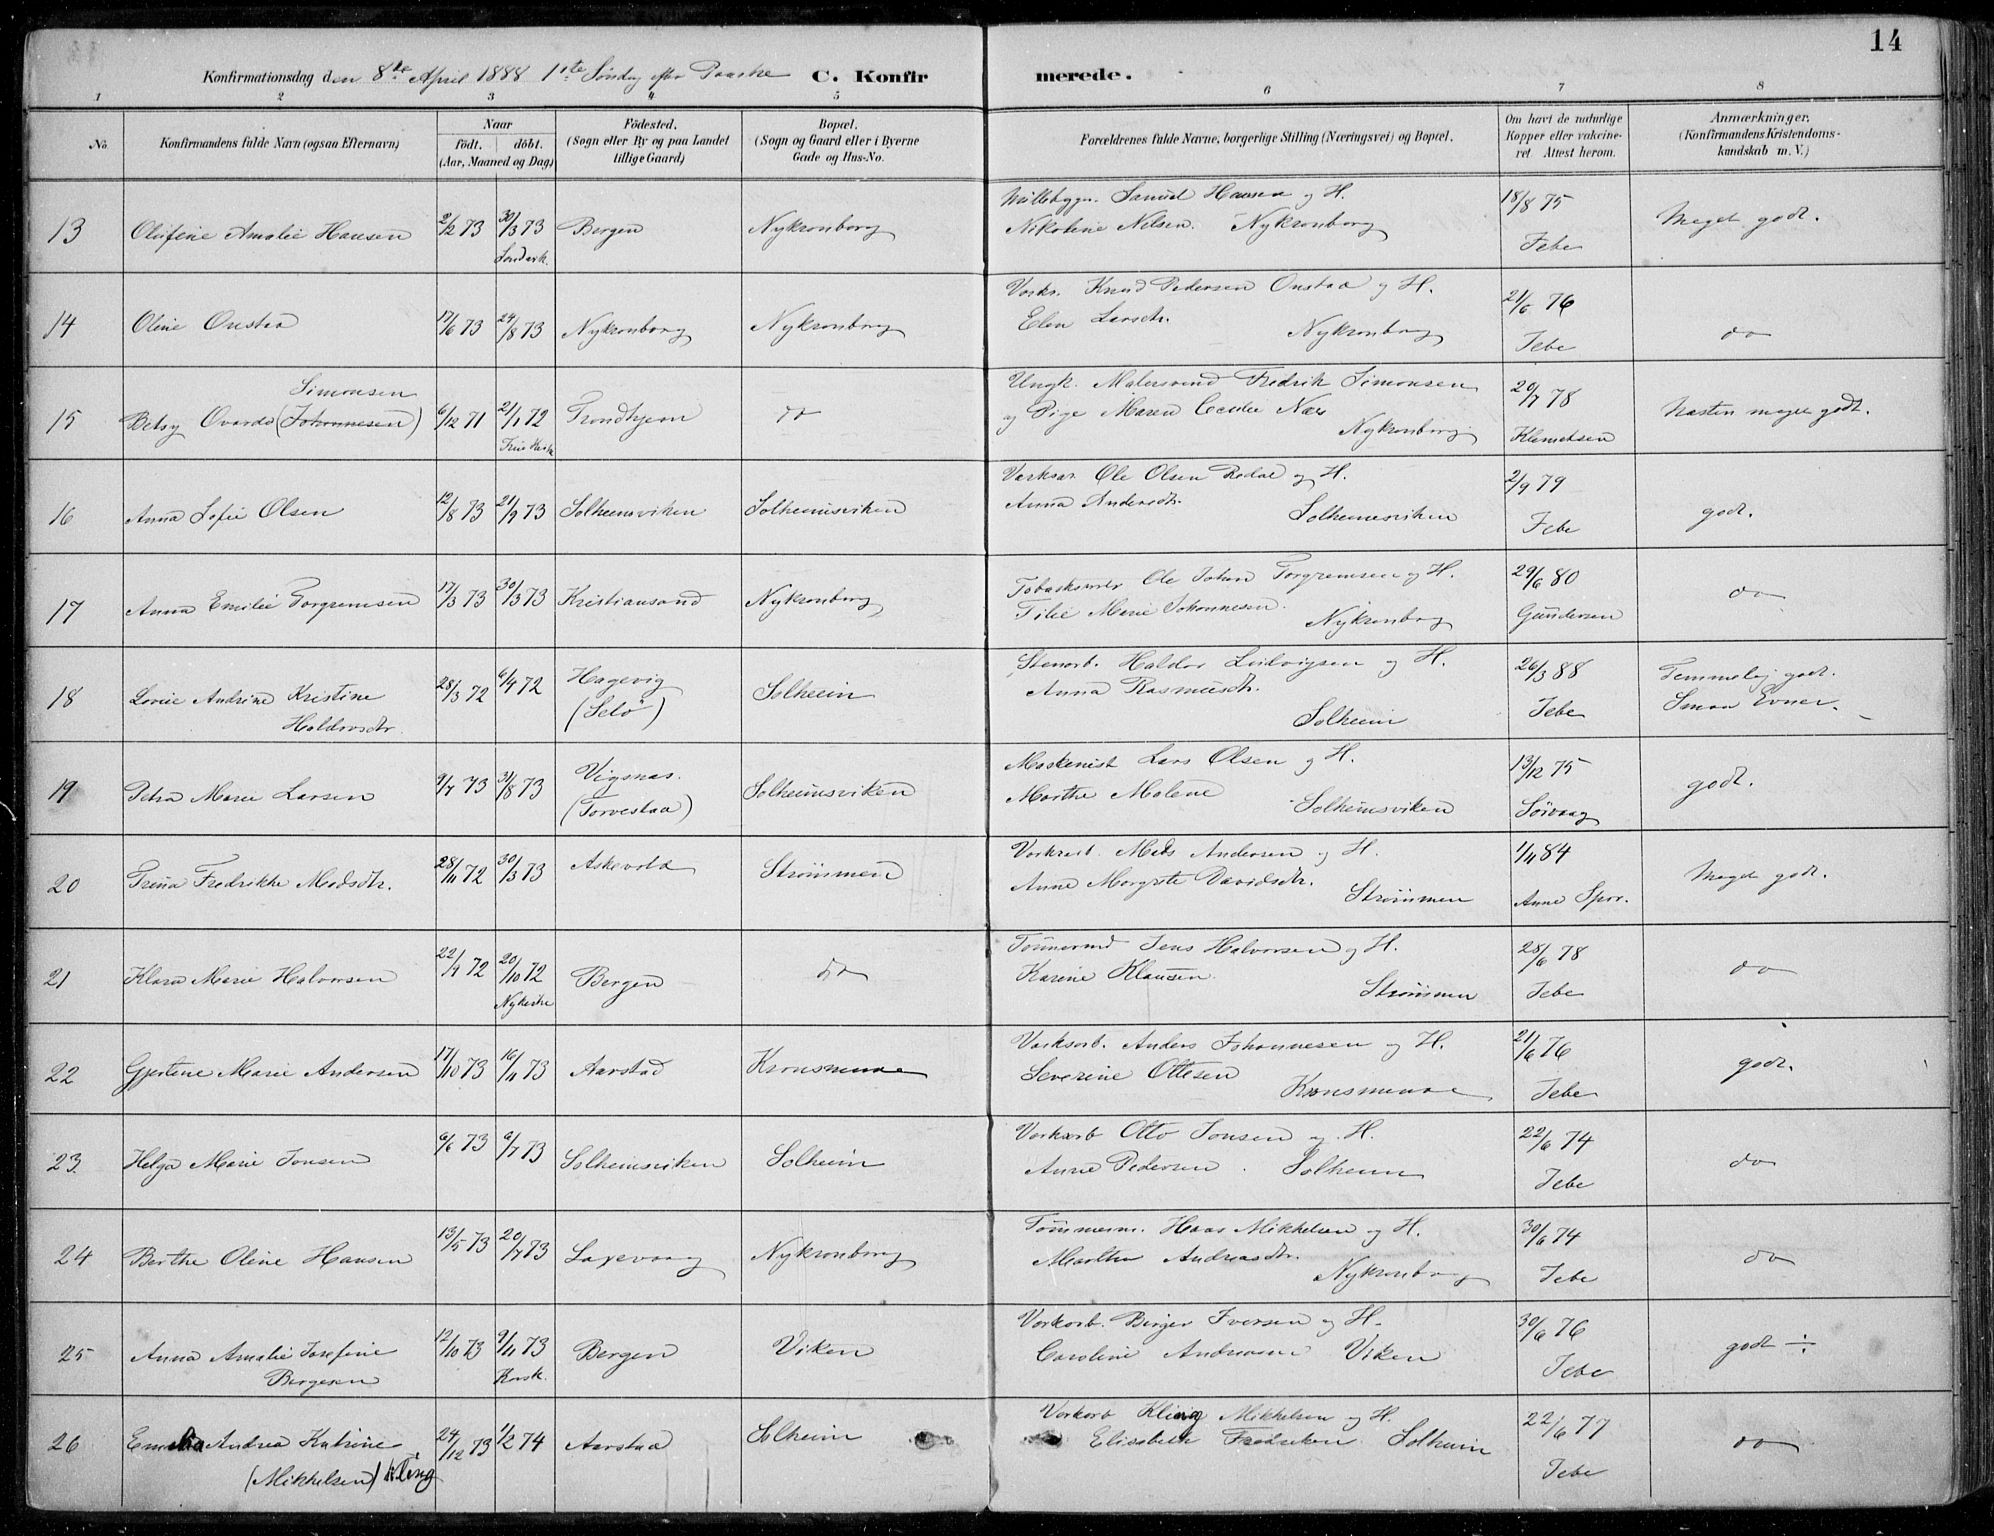 14
Konfirmationsdag den 8de April 1888 1ste Søndag efter Paaske C. Konfir merede.
1 2 3 4 5 6 7 8
No. Konfirmandens fulde Navn (ogsaa Efternavn) Naar født. døbt. (Aar, Maaned og Dag) Fødested. (Sogn eller By og paa Landet tillige Gaard) Bopæl. (Sogn og Gaard eller i Byerne Gade og Hus-No. Forældrenes fulde Navne, borgerlige Stilling (Næringsvei) og Bopæl. Om havt de naturlige Kopper eller vakcineret Attest herom. Anmærkninger. (Konfirmandens Kristendomskundskab m. V.)
13 Olufine Amalie Hansen 2/2 73 30/3 73 Bergen Nykronborg Møllebygger Samuel Hansen og H. 18/8 75 Meget godt.
Nikoline Nilsen. Nykronborg Jebe
14 Oline Onstad 17/6 73 24/8 73 Nykronborg Nykronborg Knud Pedersen Onstad og H. 21/6 76 do
Elen Larsdtr. Nykronborg Jebe
Simonsen
15 Betsy Ovarda (Johannesen) 6/12 71 21/1 72 Trondhjem do Ungk. Malersvend Fredrik Simonsen 29/7 78 Næsten meget godt.
og Pige Maren Cecilie Næs Nykronborg Klemetsen
16 Anna Sofie Olsen 12/8 73 21/9 73 Solheimsviken Solheimsviken Ole Olsen Redal og H. 2/9 79 godt.
Anna Andersdtr. Solheimsviken Jebe
17 Anna Emilie Torgremsen 17/3 73 30/3 73 Kristiansand Nykronborg Ole Johan Torgremsen og H. 29/6 80 do
Tilie Marie Johannesen. Nykronborg Gundersen
18 Lovise Andrine Kristine 28/3 72 6/4 72 Hagevig Solheim Stenarb. Haldor Ludvigsen og H. 26/3 88 Temmelig godt.
Haldorsdtr. (Selö) Anna Rasmusdtr. Solheim Jebe Smaa Evner.
19 Petra Marie Larsen 9/7 73 31/8 73 Vigsnæs. Solheimsviken Maskenist Lars Olsen og H. 13/12 75 godt.
(Torvestad) Marthe Malene Solheimsviken Sörvaag
20 Trina Fredrikke Madsdtr. 28/11 72 30/3 73 Askevold Strømmen Mads Andersen og H. 1/11 84 Meget godt.
Anne Margrete Davidsdtr. Strømmen Anne Spor.
21 Klara Marie Halvorsen 22/9 72 20/10 72 Bergen do Jens Halvorsen og H. 28/6 78 do
Nykirke Karine Klausen. Strømmen Jebe
22 Gjertine Marie Andersen 17/10 73 16/11 73 Aarstad Kronsminde Verksarb. Anders Johannesen og H. 21/6 76 godt.
Severine Ottesen Kronsminde Jebe
23 Helga Marie Jonsen 6/6 73 6/7 73 Solheimsviken Solheim Verksarb Otto Jonsen og H. 22/6 74 do
Anne Pedersen. Solheim Jebe
24 Berthe Oline Hansen 13/5 73 20/7 73 Laxevaag Nykronborg Tømmerm. Hans Mikkelsen og H. 30/6 74 do
Marthe Andreasdtr. Nykronborg Jebe
25 Anna Amalie Josefine 12/10 73 9/11 73 Bergen Viken Verksarb. Birger Iversen og H. 30/6 76 godt ÷
Bergesen Korsk. Caroline Andreasen Viken Jebe
26 Emelia Andrea Katrine 24/12 73 1/2 74 Aarstad Solheim Verksarb Kling Mikkelsen og H. 22/6 77 do
(Mikkelsen) Kling Elisabeth Fredriksen. Solheim Jebe